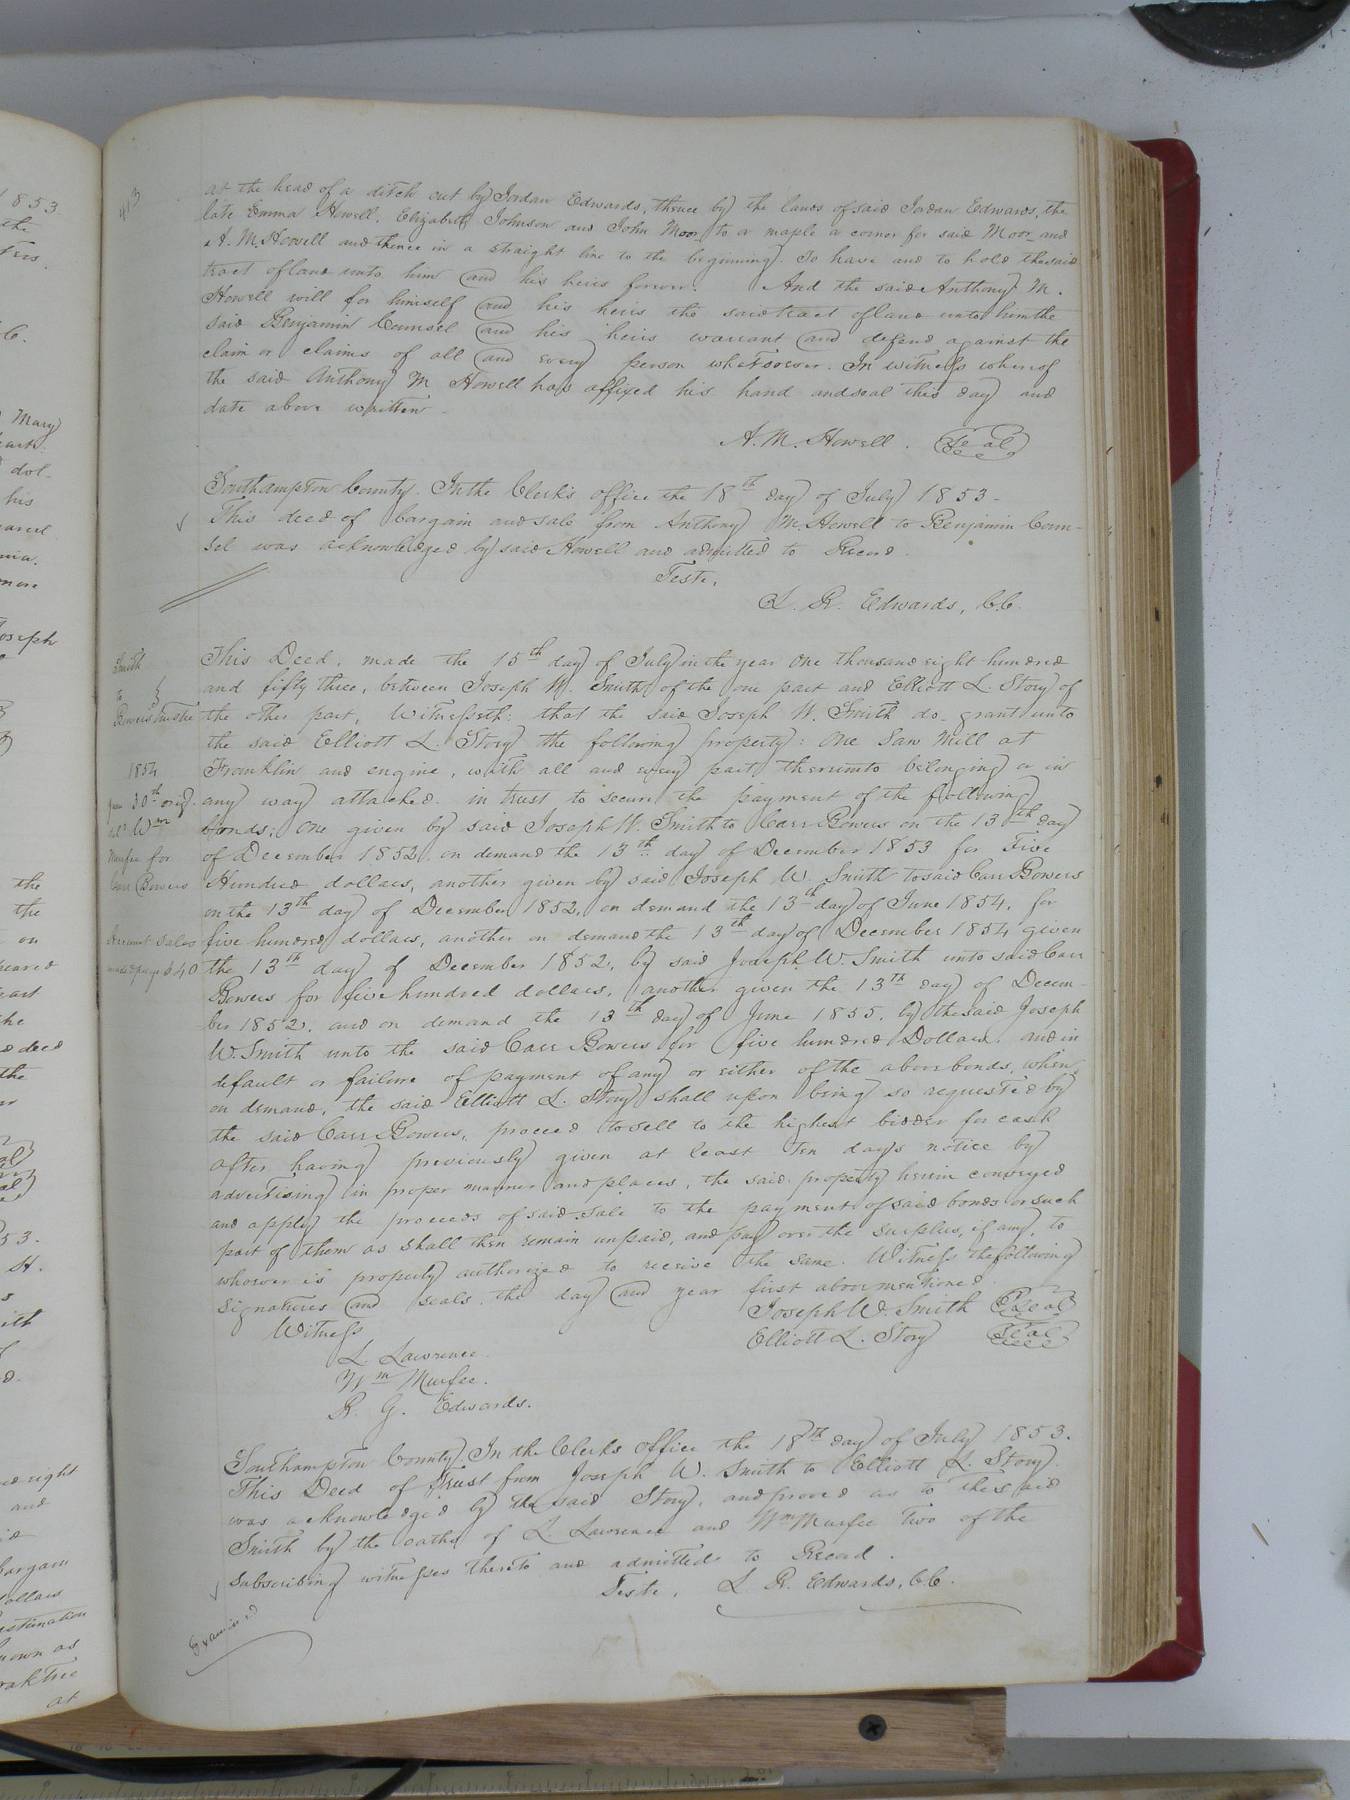 413
at the head of a ditch cut by Jordan Edwards, thence by the lands of said Jordan Edwards, the
late Emma Howell, Elizabeth Johnson and John Moor_ to a maple a corner for said Moor_ and
A. M. Howell and thence in a straight line to the beginning. To have and to hold the said
tract of land unto him and his heirs forever. And the said Anthony M.
Howell will for himself and his heirs the said tract of land unto him the
said Benjamin Counsel and his heirs warrant and defend against the
claim or claims of all and every person whatsoever. In witness whereof
the said Anthony M Howell has affixed his hand and seal this day and
date above written
A. M. Howell. Seal
Southampton County. In the Clerk's office the 18th day of July 1853-
This deed of bargain and sale from Anthony M. Howell to Benjamin Coun-
sel was acknowledged by said Howell and admitted to Record.
Teste,
L. R. Edwards, C.C.
Smith
to
Bowers trustee
1854
30th orig.
Wm
Murfee for
Carr Bowers
Account Sales
page 640
This Deed, made the 15th day of July in the year One thousand eight hundred
and fifty three, between Joseph W. Smith of the one part and Elliott L. Story of
the other part, Witnesseth: that the said Joseph W. Smith do grant unto
the said Elliott L. Story the following property: One Saw Mill at
Franklin and engine, with all and every part thereunto belonging or in
any way attached. in trust to secure the payment of the following
bonds; One given by said Joseph W. Smith to Carr Bowers on the 13th day
of December 1852, on demand the 13th day of December 1853 for Five
Hundred dollars, another given by said Joseph W. Smith to said Carr Bowers
on the 13th day of December 1852, on demand the 13th day of June 1854, for
five hundred dollars, another on demand the 13th day of December 1854 given
the 13th day of December 1852, by said Joseph W. Smith unto said Carr
Bowers for five hundred dollars, another given the 13th day of Decem-
ber 1852, and on demand the 13th day of June 1855, by the said Joseph
W. Smith unto the said Carr Bowers for five hundred Dollars. and in
default or failure of payment of any or either of the above bonds, when
on demand, the said Elliott L. Story shall upon being so requested by
the said Carr Bowers, proceed to sell to the highest bidder for cash
after having previously given at least ten days notice by
advertising in proper manner and places, the said property herein conveyed
and apply the proceeds of said sale to the payment of said bonds or such
part of them as shall then remain unpaid, and pay over the surplus, if any, to
whoever is properly authorized to receive the same. Witness the following
signatures and seals the day and year first above mentioned.
Witness
Joseph W. Smith Seal
Elliott L. Story Seal
L. Lawrence.
Wm Murfee.
R. G. Edwards.
Southampton County. In the Clerks office the 18th day of July 1853.
This Deed of Trust from Joseph W. Smith to Elliott L. Story
was acknowledged by the said Story, and proved as to the said
Smith by the oaths of L. Lawrence and Wm Murfee two of the
subscribing witnesses thereto and admitted to Record.
Teste, L. R. Edwards, C.C.
Examined